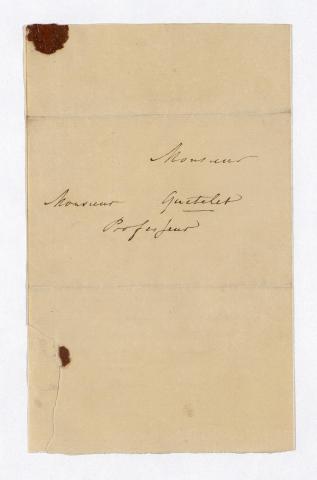 Monsieur
Monsieur Quetelet
Professeur